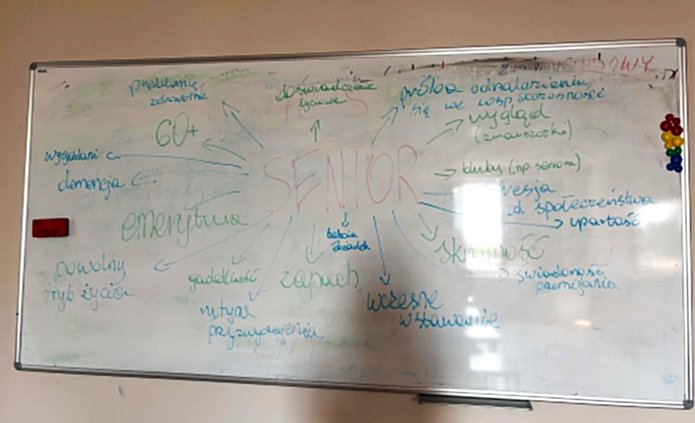 problemy
zdrowotne
doświadczenie
życiowe
próba odnalezienia
się we współczesności
60+
wygląd
(zmarszczki)
SENIOR
kluby (np seniora)
demencja
od społeczeństwa
upartość
emerytura
babcia
dziadek
skromność
powolny
tryb życia
gadatliwość
zapach
świadomość
przemijania
wczesne
wstawanie
przyzwyczajenia